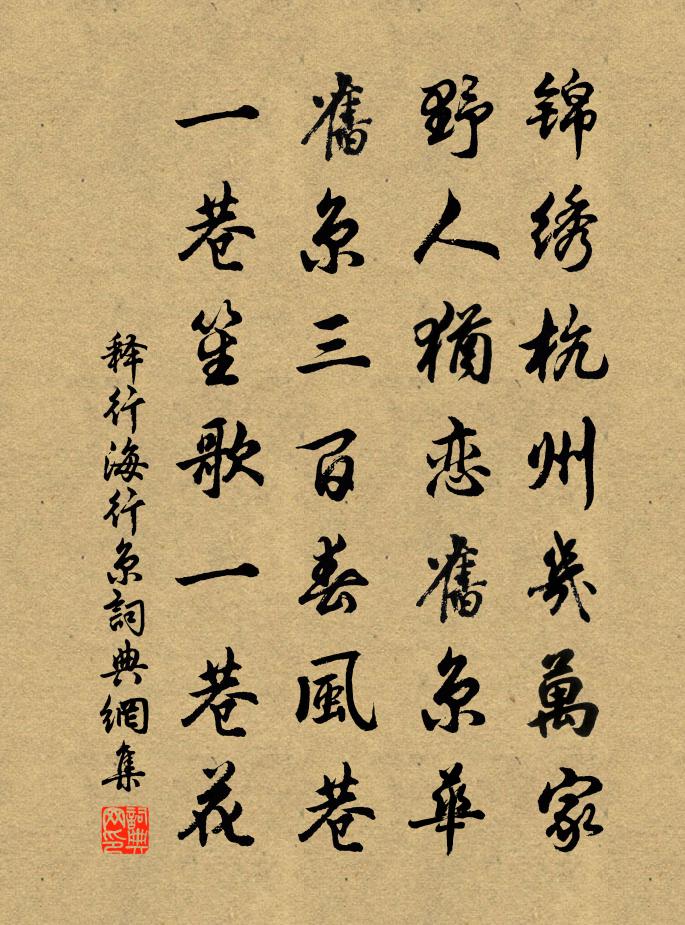 锦绣杭州几萬家
野人猶恋舊京華
舊京三百春風巷
一巷笙歌一巷花
释行海行京詞典網集
詞典网印